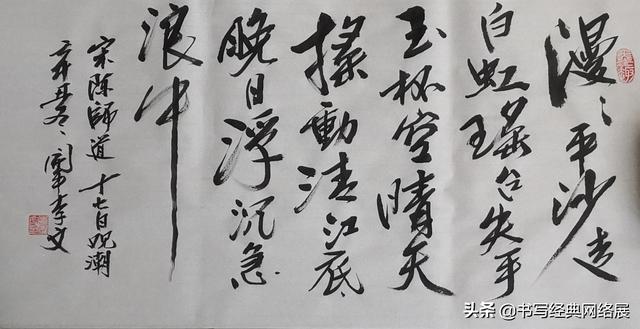 漫〻平沙走
白虹瑶台失手
玉杯空晴天
搖動清江底
晚日浮沉急
浪中
宋陈師道十七日观潮
辛丑 李文
头条@书写经典网络展